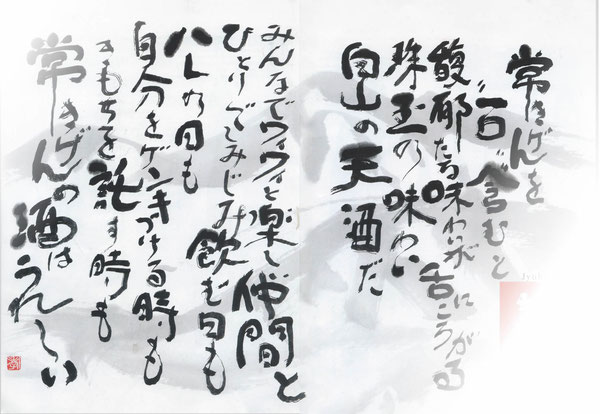 常きげんを
〝一口〟含むと
馥郁たる味わいが舌にころがる
珠玉の味わい
白山の天酒だ
みんなでワイワイと楽し仲間と
ひとりでしみじみ飲む日も
ハレの日も
自分をゲンキづける時も
きもちを託す時も
常きげんの酒はうれしい